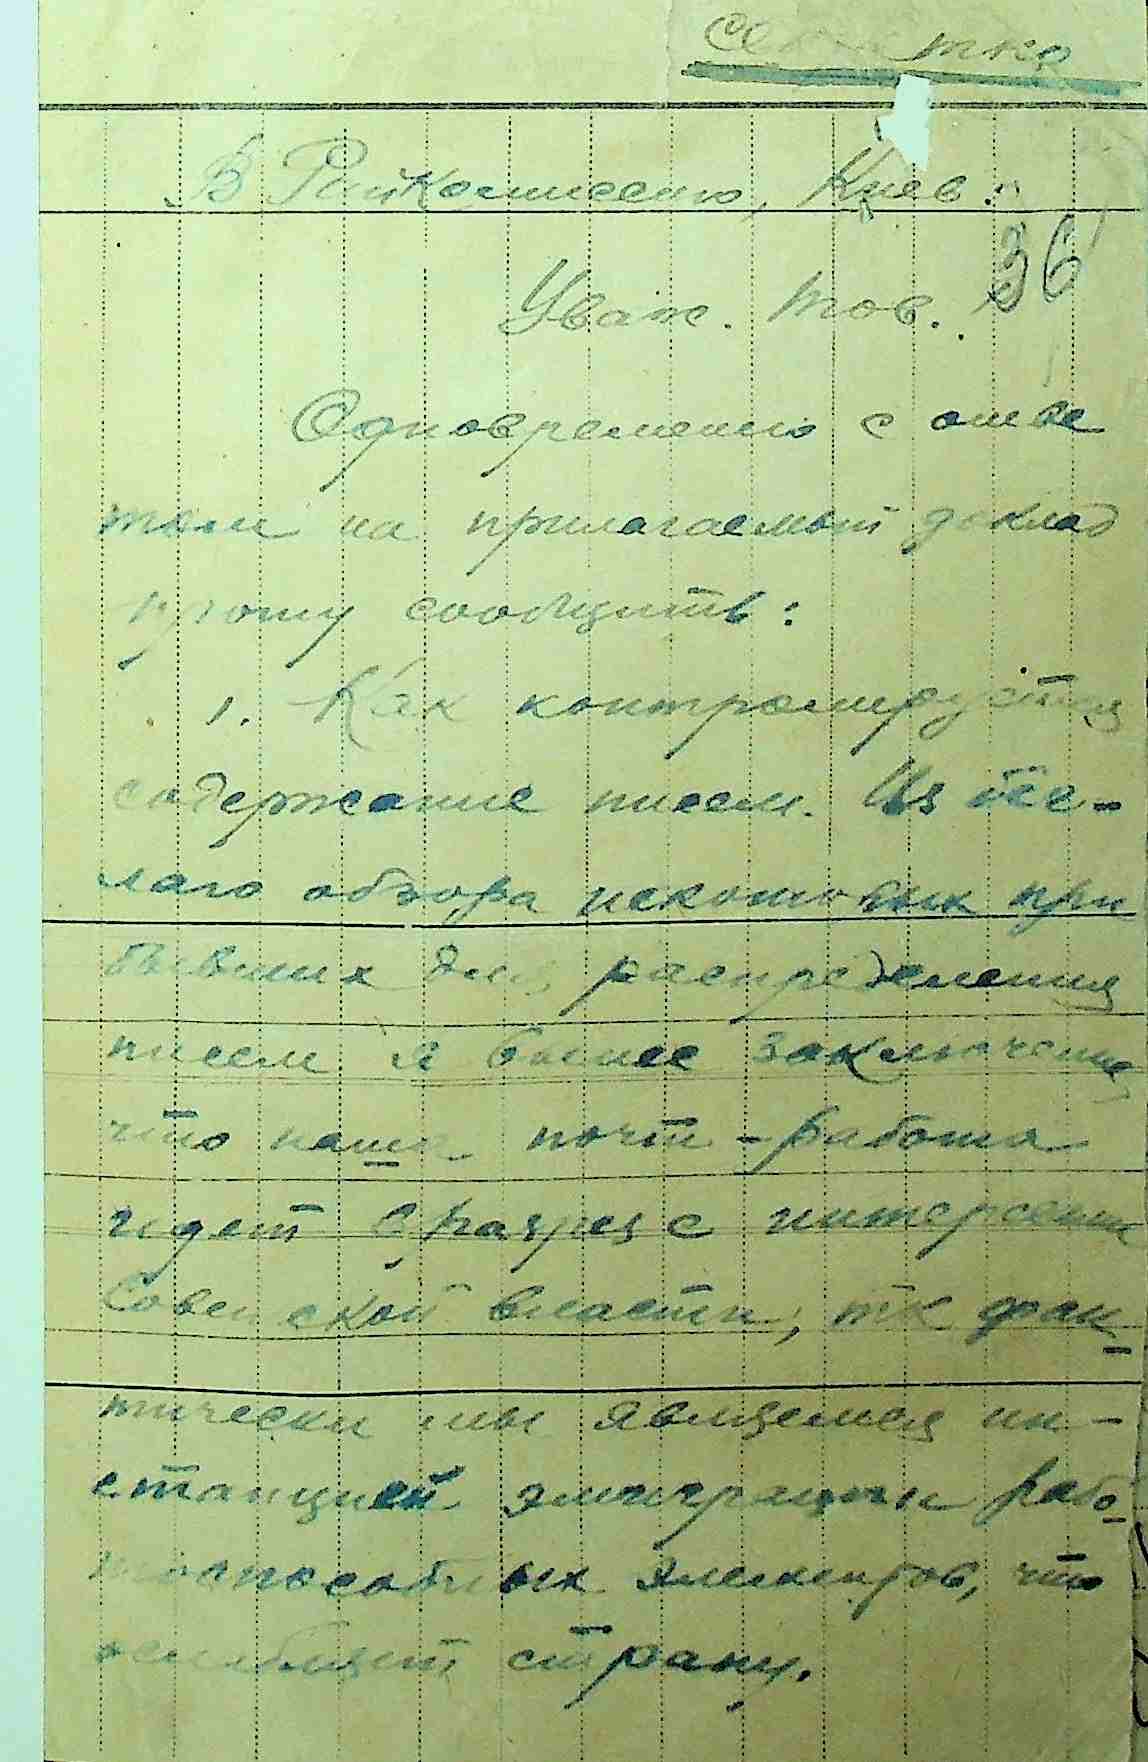 В Райкомиссию, Киев.
36
Уваж. тов.
Одновременно с отве
том на прилагаемый доклад
прошу сообщить:
1. Как контролируется
содержание писем. Из бе-
глаго обзора некоторых при
бывших для распределения
писем я вынес заключение
что наша почт-работа
идет вразрез с интересами
Советской власти, тк фак
тически мы являемся ин-
станцией эмиграции рабо
тоспособных элементов, что
ослабляет страну.